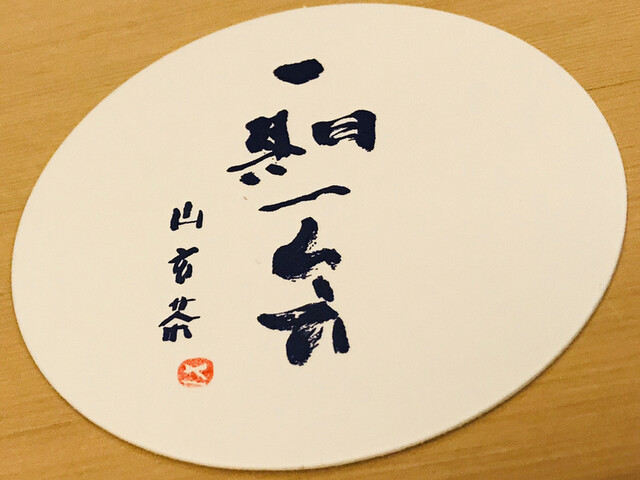 一期一会
山玄茶